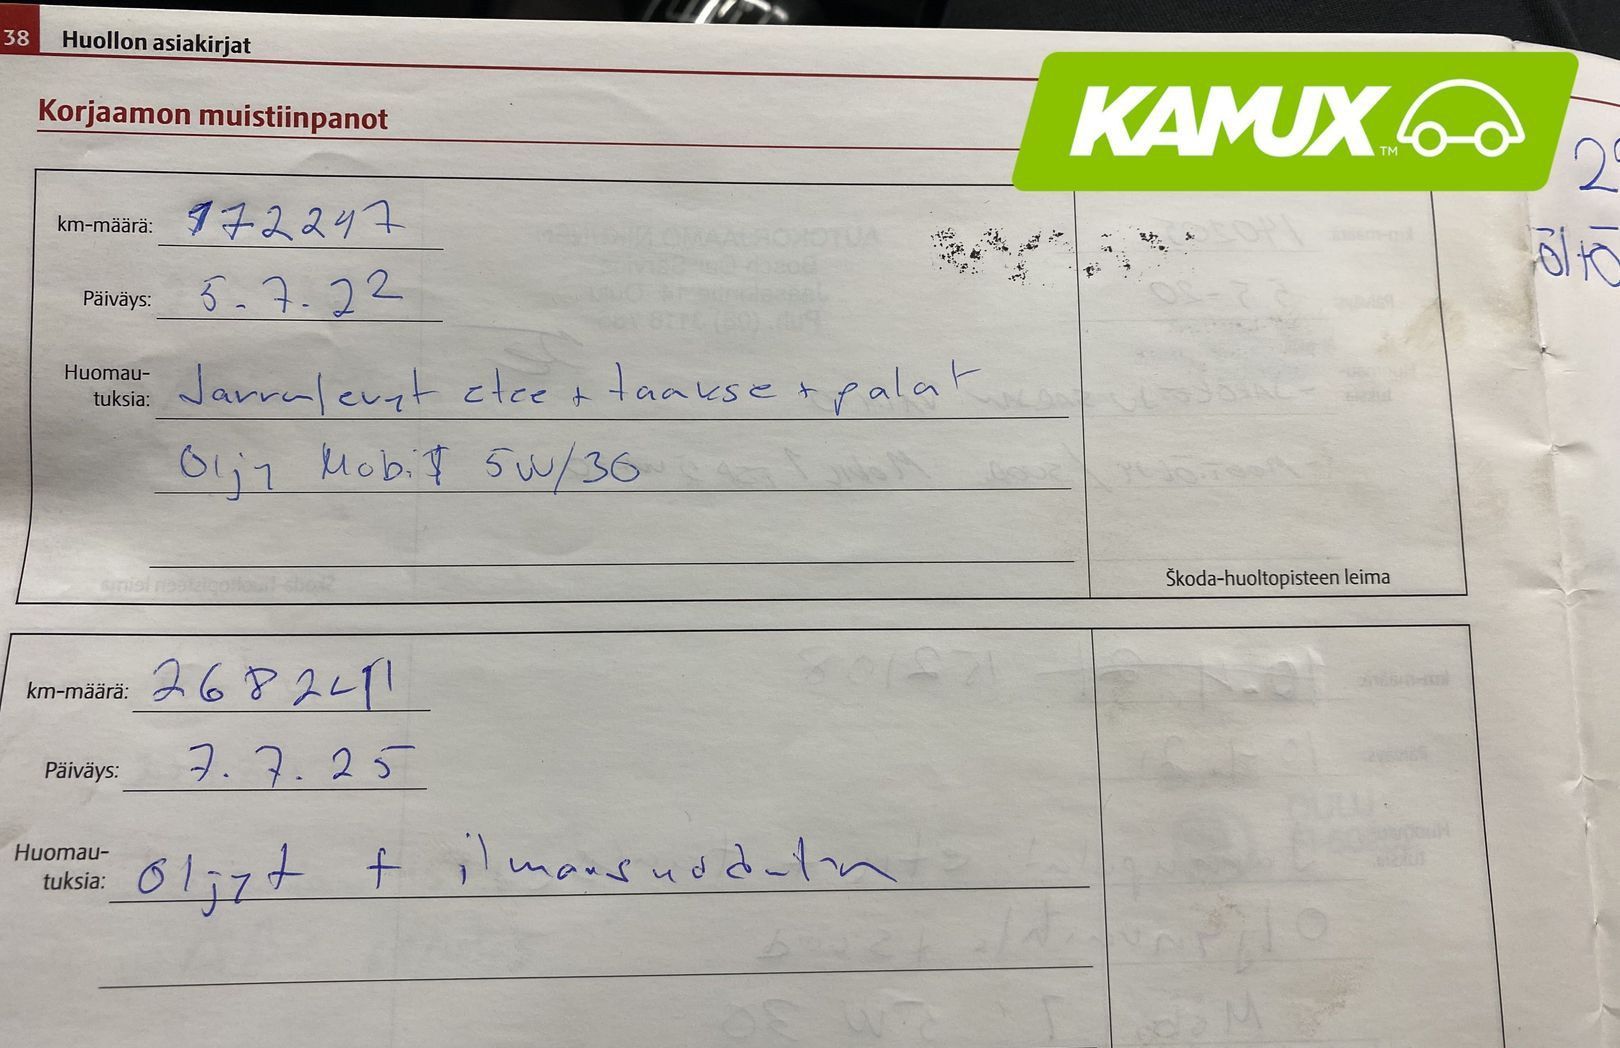 38 Huollon asiakirjat
KAMUX™
Korjaamon muistiinpanot
km-määrä: 172247
Päiväys: 5.7.22
Huomau-
tuksia: Jarrulevyt etee + taakse + palat
Öljy Mobil 5W/30
Škoda-huoltopisteen leima
km-määrä:
Päiväys: 7.7.25
Huomau-
tuksia: Öljyt + ilmansuodatin